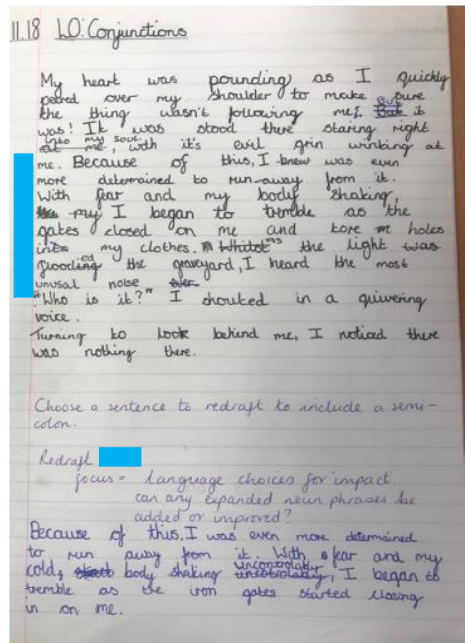 11.18 LO: Conjunctions
My heart was pounding as I quickly
peered over my shoulder to make sure
the thing wasn't following me; But it
was! It was stood there staring right
into my soul, with it's evil grin winking at
me. Because of this, I was even
more determined to run away from it.
With fear and my body shaking,
I began to tremble as the
gates closed on me and tore holes
my clothes. as the light
flooded the graveyard, I heard the most
unusal noise
"Who is it?" I shouted in a quivering
voice.
Turning to look behind me, I noticed there
was nothing there.
Choose a sentence to redraft to include a semi-
colon.
Redraft
focus = language choices for impact.
can any expanded noun phrases be
added or improved?
Because of this, I was even more determined
to run away from it. With fear and my
cold, body shaking uncontrolably, I began to
tremble as the iron gates started closing
in on me.